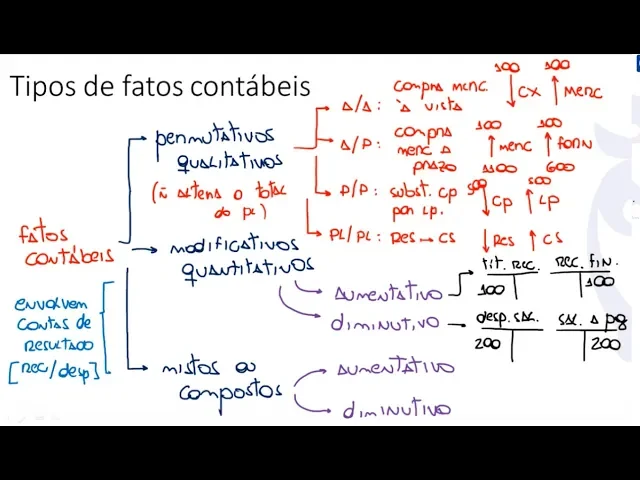 Tipos de fatos contábeis
fatos
contábeis
envolvem
contas de
resultado
[Rec/desp]
permutativos
qualitativos
(ñ altera o total
do PL)
modificativos
quantitativos
mistos ou
compostos
A/A: compra merc.
à vista
100 100
↓CX ↑MERC
A/P: compra
merc a
prazo
100 100
↑merc ↑forn
1100 600
P/P: subst. CP
por LP.
500 500
↓CP ↑LP
PL/PL: Res → CS
↓Res ↑CS
aumentativo
tit. rec. rec. fin.
100 100
diminutivo
desp. sal. sal. a pg
200 200
aumentativo
diminutivo